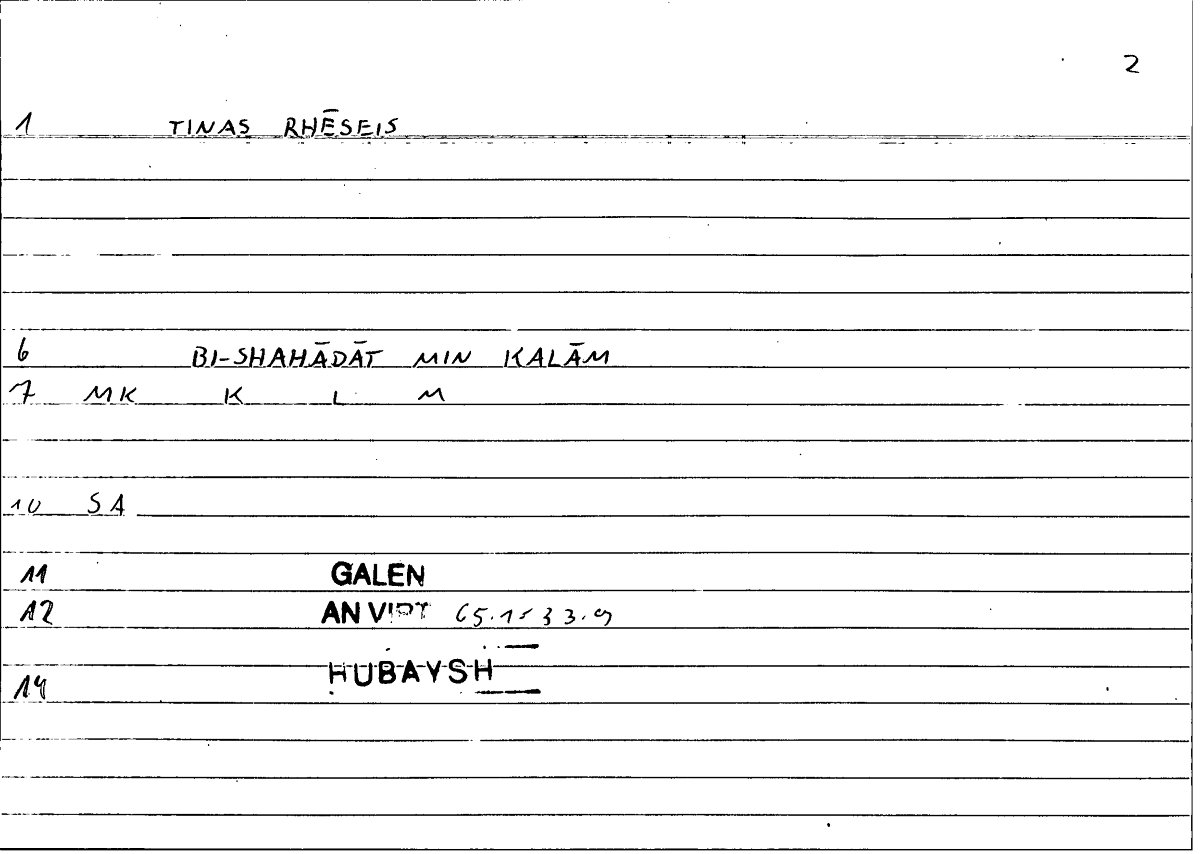 2
1 TINAS RHĒSEIS
6 BI-SHAHĀDĀT MIN KALĀM
7 MK K L M
10 SA
11 GALEN
12 AN VIRT 65.1-33.9
14 HUBAYSH